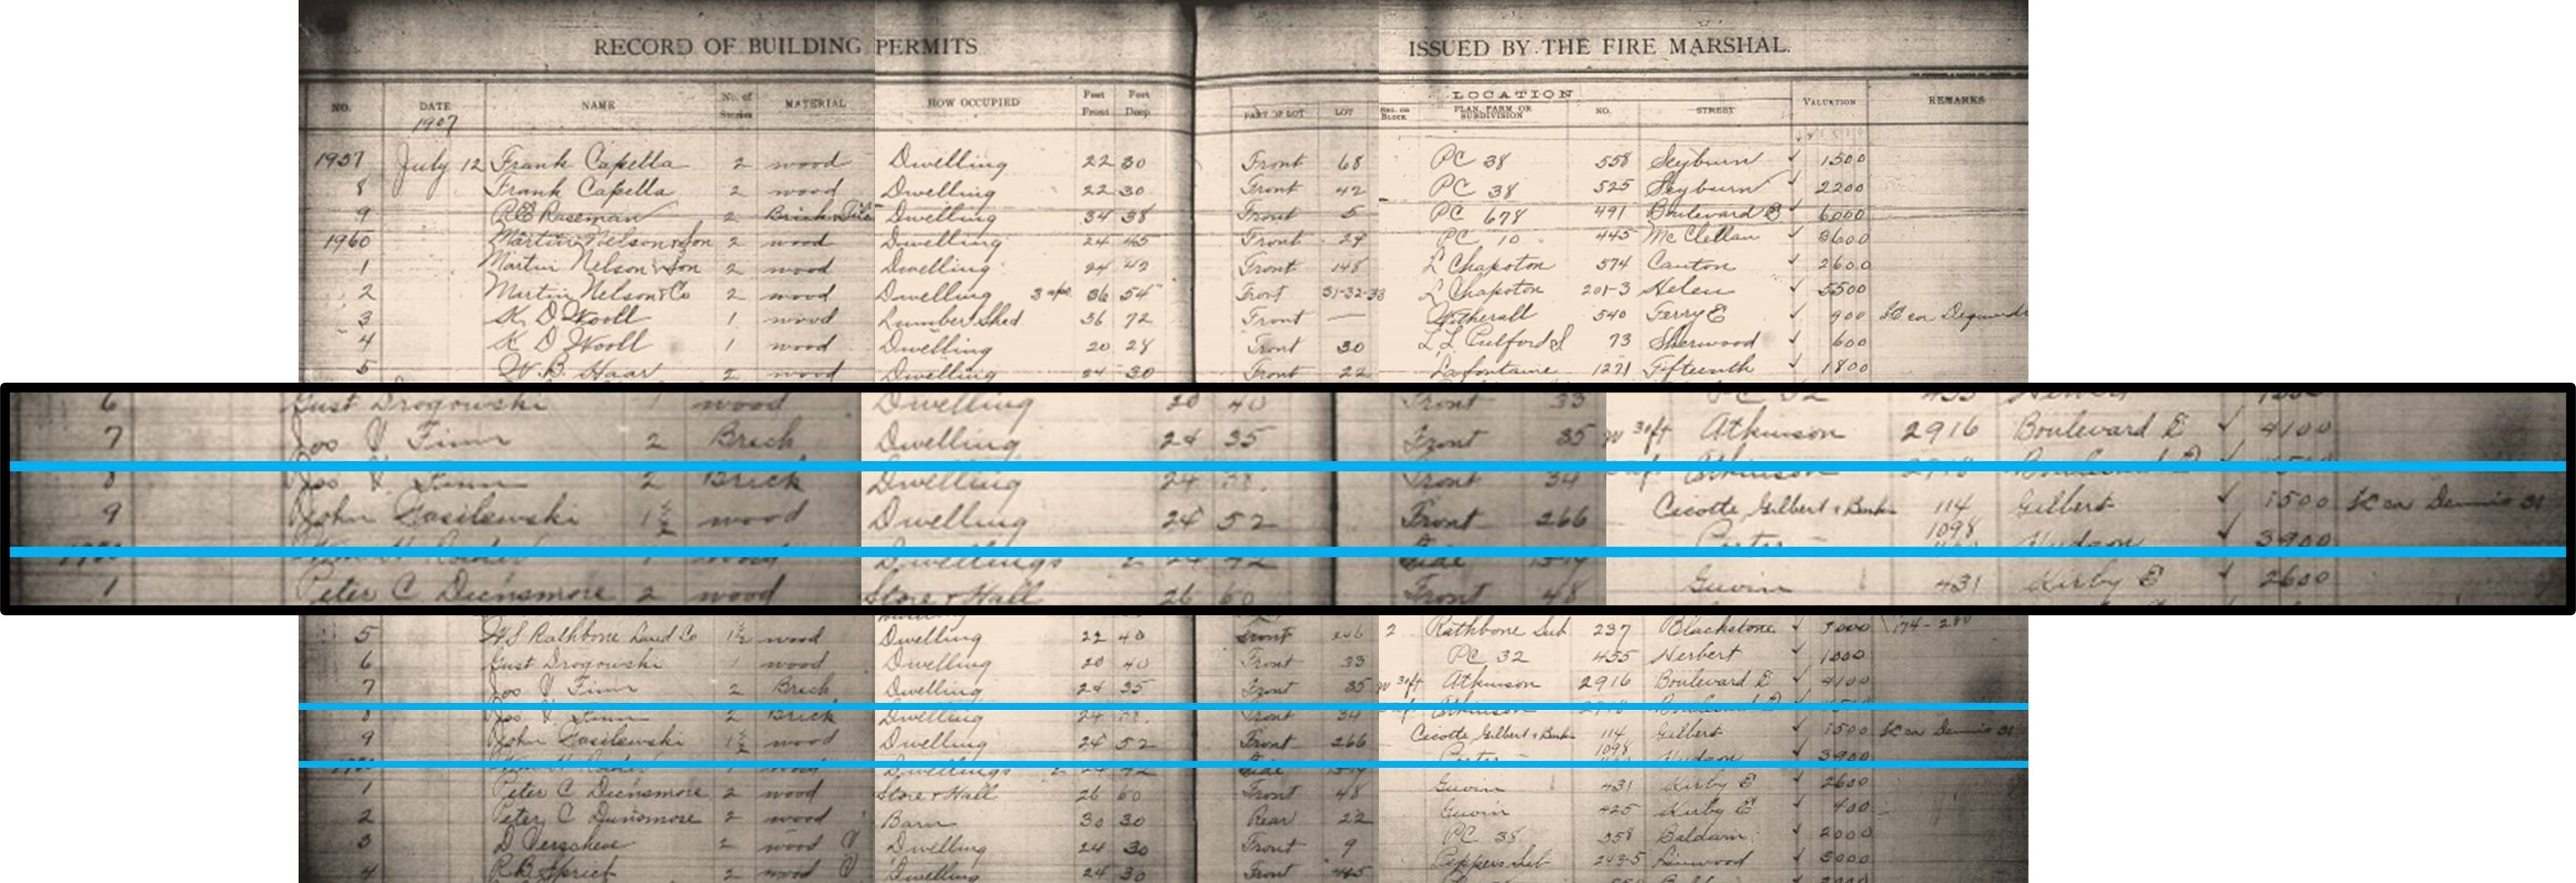 RECORD OF BUILDING PERMITS ISSUED BY THE FIRE MARSHAL.
LOCATION
NO. DATE NAME No. of Stories MATERIAL HOW OCCUPIED Feet Front Feet Deep PART OF LOT LOT Sec. or Block PLAN, FARM OR SUBDIVISION NO. STREET VALUATION REMARKS
1907
1957 July 12 Frank Capella 2 wood Dwelling 22 30 Front 68 PC 38 558 Seyburn ✓ 1500
8 Frank Capella 2 wood Dwelling 22 30 Front 42 PC 38 525 Seyburn ✓ 2200
9 Raseman 2 Brick Dwelling 34 38 Front 5 PC 678 491 Boulevard E ✓ 6000
1960 Martin Nelson & Son 2 wood Dwelling 24 45 Front 24 PC 10 445 McClellan ✓ 3600
1 Martin Nelson & Son 2 wood Dwelling 24 42 Front 148 L Chapoton 574 Canton ✓ 2600
2 Martin Nelson & Co 2 wood Dwelling 36 54 Front 31-32-33 L Chapoton 201-3 Helen ✓ 5500
3 K D Wooll 1 wood Lumber Shed 36 72 Front — Witherall 540 Ferry E ✓ 900
4 K D Wooll 1 wood Dwelling 20 28 Front 30 73 Sherwood ✓ 600
5 W. B. Haar 2 wood Dwelling 24 30 Front 22 Lafontaine 1271 Fifteenth ✓ 1800
6 Gust Drogowski 1 wood Dwelling 20 40 Front 33
7 Jos V. Finn 2 Brick Dwelling 24 35 Front 35 W 30ft Atkinson 2916 Boulevard E ✓ 4100
8 Jos V. Finn 2 Brick Dwelling 24 Front 34 Atkinson
9 John Gasilewski 1½ wood Dwelling 24 52 Front 266 Cicotte, Gilbert & Bark 114 Gilbert ✓ 1500
Dwellings 2 24 42 Side 1098 Hudson ✓ 3900
1 Peter C Dunsmore 2 wood Store & Hall 26 60 Front 48 Guvin 431 Kirby E ✓ 2600
5 H S Rathbone Land Co 1½ wood Dwelling 22 40 Front 246 2 Rathbone Sub 237 Blackstone ✓
6 Gust Drogowski 1 wood Dwelling 20 40 Front 33 PC 32 455 Herbert ✓
7 Jos V. Finn 2 Brick Dwelling 24 35 Front 35 W 30ft Atkinson 2916 Boulevard E ✓ 4100
8 Jos V. Finn 2 Brick Dwelling 24 Front 34 Atkinson
9 John Gasilewski 1½ wood Dwelling 24 52 Front 266 Cicotte Gilbert & Bark 114 Gilbert ✓ 1500
Dwellings 2 24 42 Side 1098 Hudson ✓ 3900
1 Peter C Dunsmore 2 wood Store & Hall 26 60 Front 48 Guvin 431 Kirby E ✓ 2600
2 Peter C Dunsmore 2 wood Barn 30 30 Rear 22 Guvin 425 Kirby E ✓ 400
3 D Verscheve 2 wood Dwelling 24 30 Front 9 PC 38 358 Baldwin ✓ 2000
4 2 wood Dwelling 24 30 Front Peppers Sub 243-5 Linwood ✓ 5000